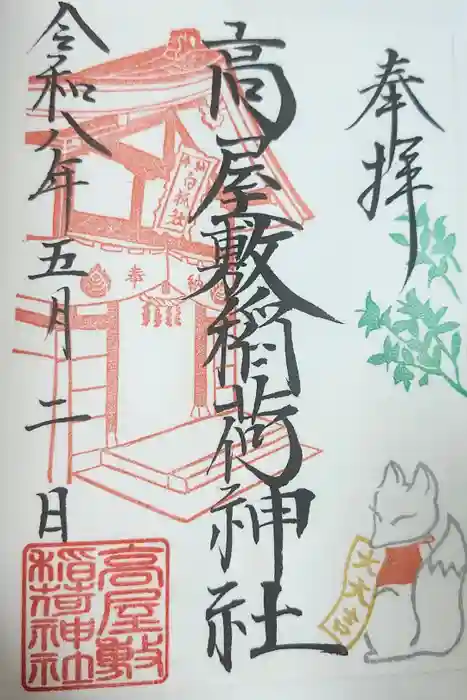 奉拝
高屋敷稲荷神社
令和八年五月二日
奉納
高屋敷
稲荷神社
大大吉